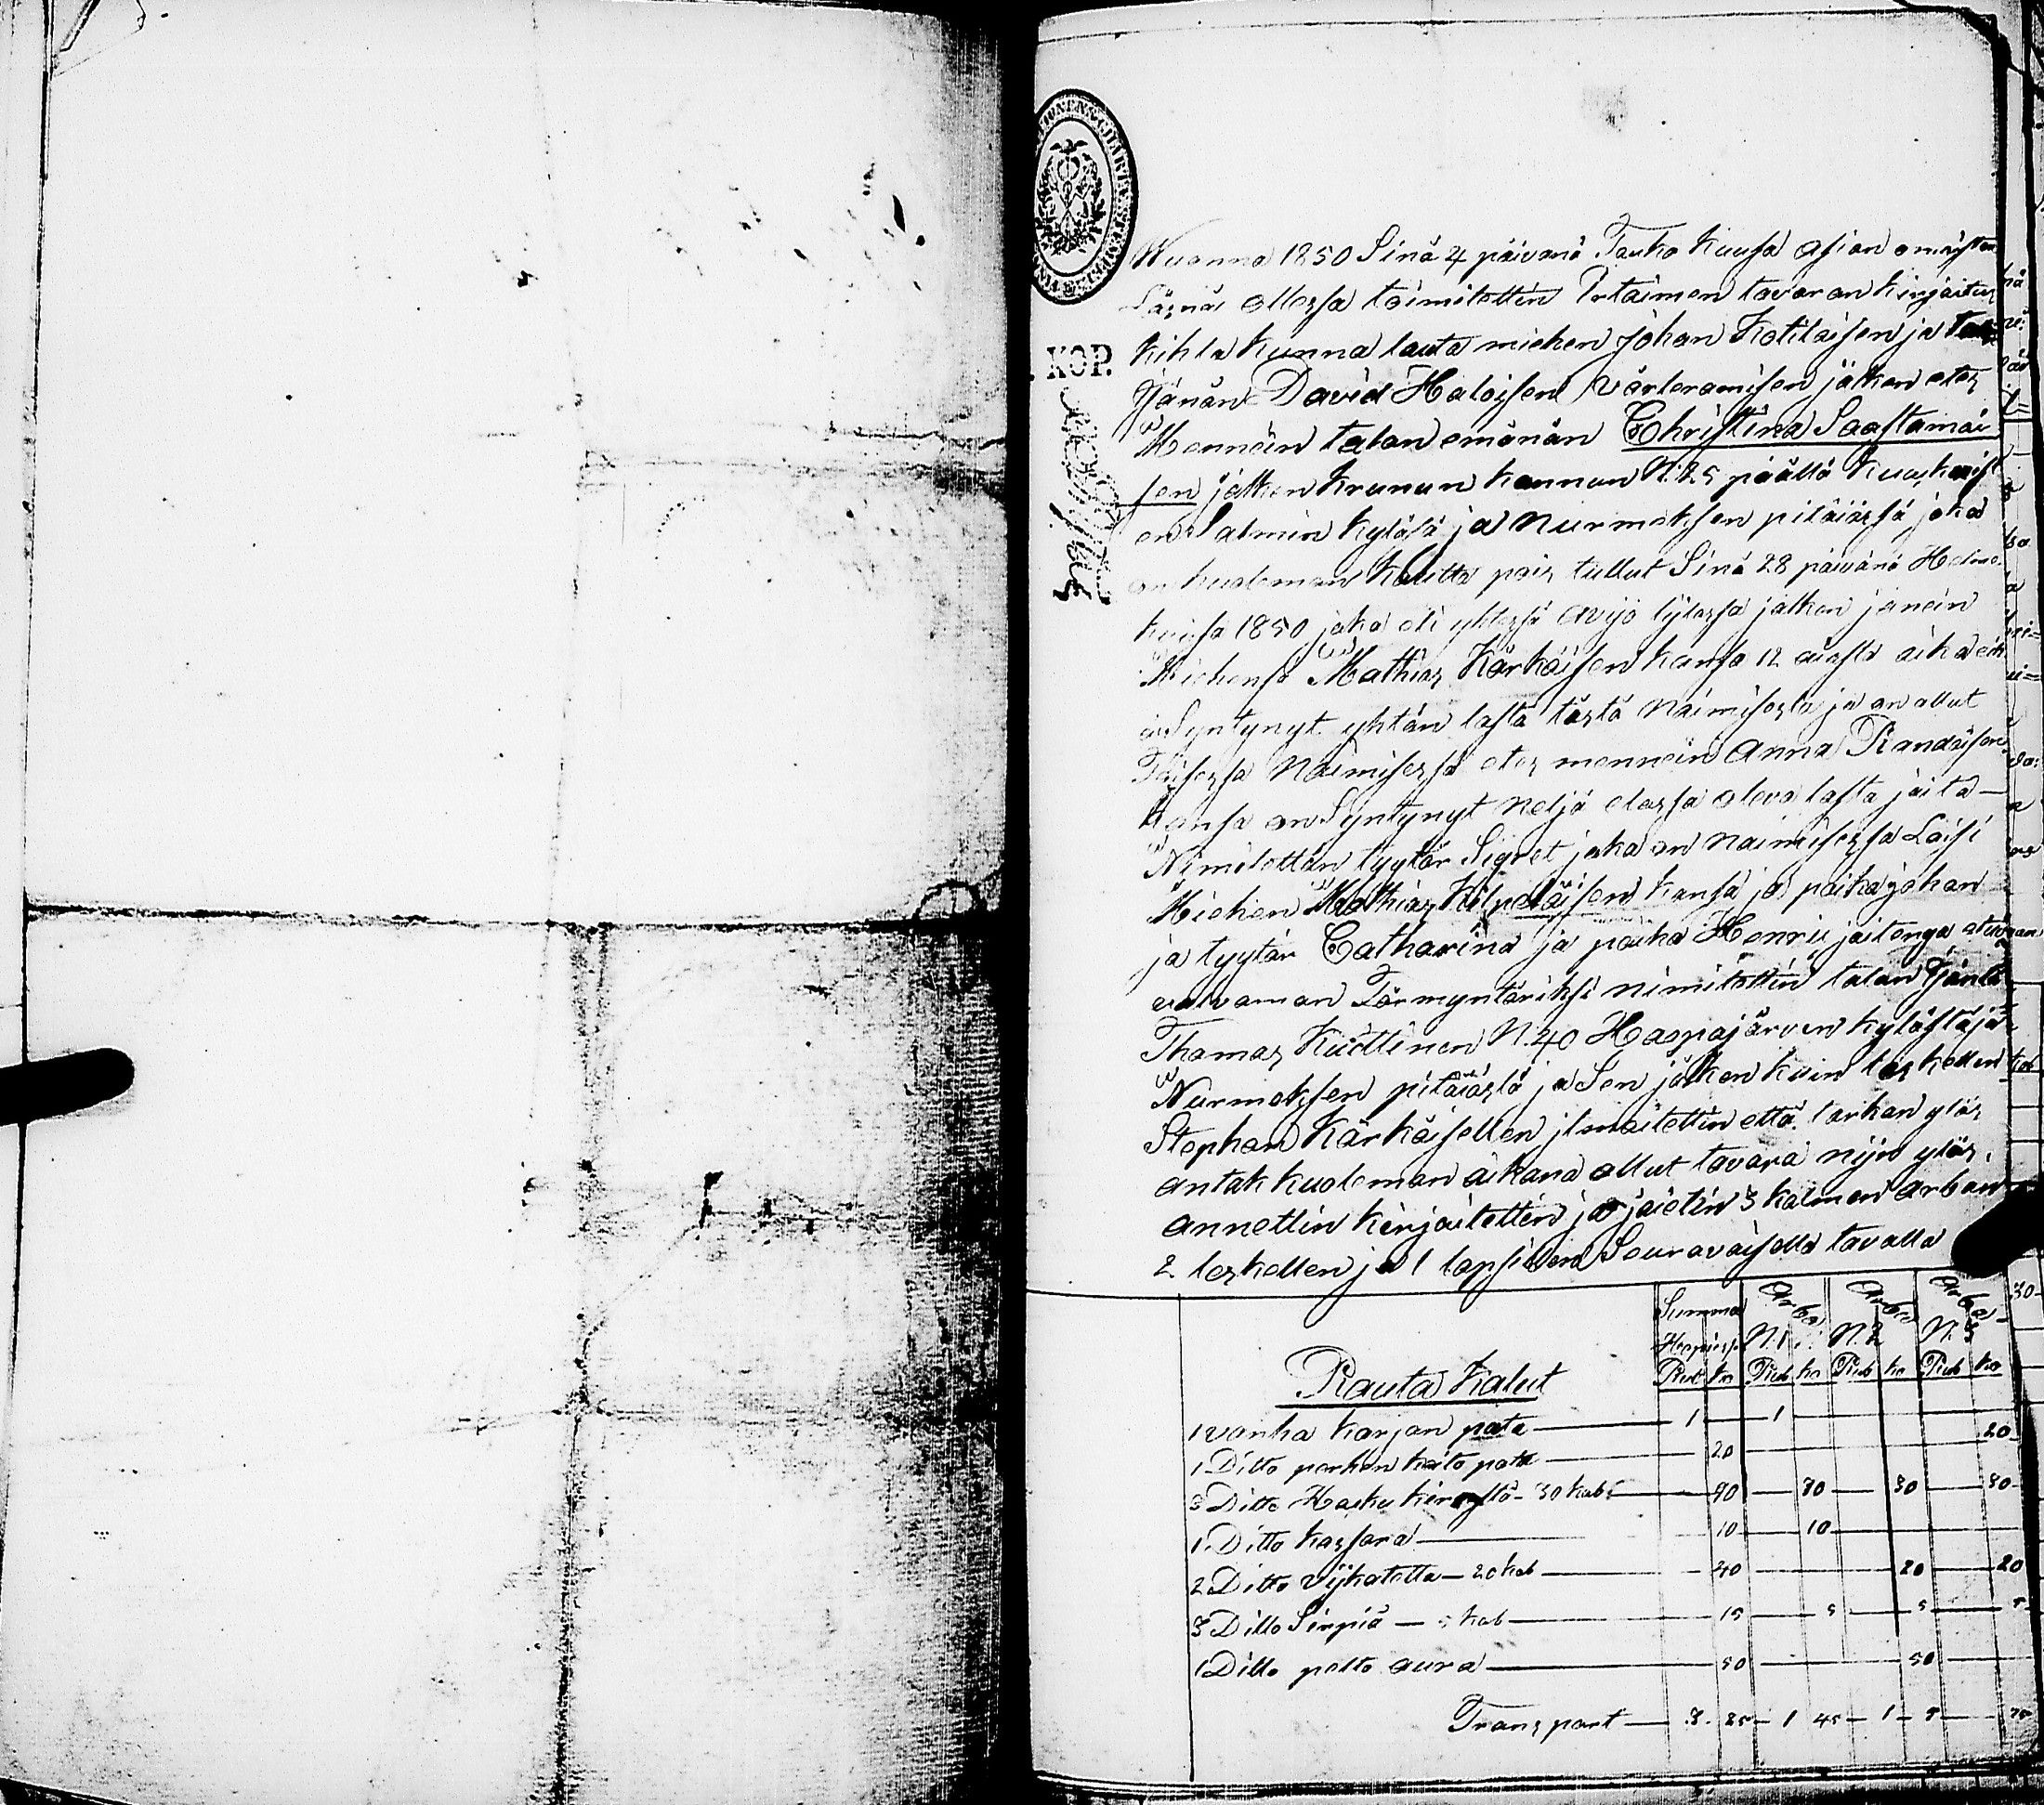 Wuonna 1850 Sinä 4 päivänä Touko kuusa asian omaisten
Läsnä ollessa toimitettin Irtaimen tavaran kirjoitus
. KOP. kihla kunna lauta miehen Johan Kotilaisen ja
David Haloisen värleramisen jälken etes
Mennen talon emänän Christina Saastamoi
sen jälken krunun kannun N. 25 päällä Kuoh
en Salmin kyläsä ja Nurmeksen pitäiässä joka
on kualeman kautta pois tullut Sinä 28 päivänä Helme
kuusa 1850 joka oli yhtessä avijo lijtossa jälken jänein
Miehensä Mathias Kärkäisen kansa 12 aiasta aika eik
ä Syntynyt yhtän lasta tästä Naimisesta ja on allut
Toisessa Naimisessa etes mennein Anna Randaisen
kansa on Syntynyt neljä elossa oleva lasta joita
Nimitettän tyytär Sigret joka on naimisessa Loisi
Miehen Mathias Kilpeläisen kansa ja poika Johan
ja tyytär Catharina ja poika Henric joitenga etua
valvaman Förmyntäriksi nimitettin talon
Thomas Kuottinen N. 40 Haapajärven kylästä ja
Nurmeksen pitäiästä ja Sen jälken kuin leskellen
Stephan Kärkäisellen ilmoitettin että tarkan ylös
antak kuoleman aikana ollut tavara nijn ylös
annettin kirjoitettin ja jaietin 3 kolmen arban
2 leskellen ja 1 lapsillen Seuravaisella tavalla
Summa Arba Arba Arba
Hopiassa N. 1 N. 2 N. 3
Rauta Kalut Rub ko Rub ko Rub ko Rub ko
1 vanha karjan pata 1 1
1 Ditto parhen keito pata 20 20
3 Ditto Hasku kirvestä 30 kab 90 30 30 30
1 Ditto kassara 10 10
2 Ditto Vijkatetta 20 kab 40 20 20
3 Ditto Sirpiä 5 kab 15 5 5 5
1 Ditto pelto aura 50 50
Transport 3 25 1 45 1 5 75